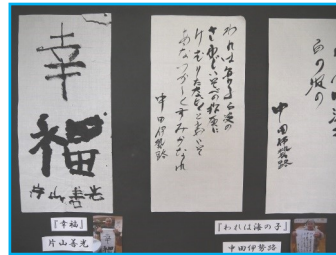 幸
福
片山善光
われは海の子白浪の
さわぐいそべの松原に
けむりたなびくとまやこそ
わがなつかしきすみかなれ
中田伊勢路
中田伊勢路
『幸福』
片山善光
『われは海の子』
中田伊勢路